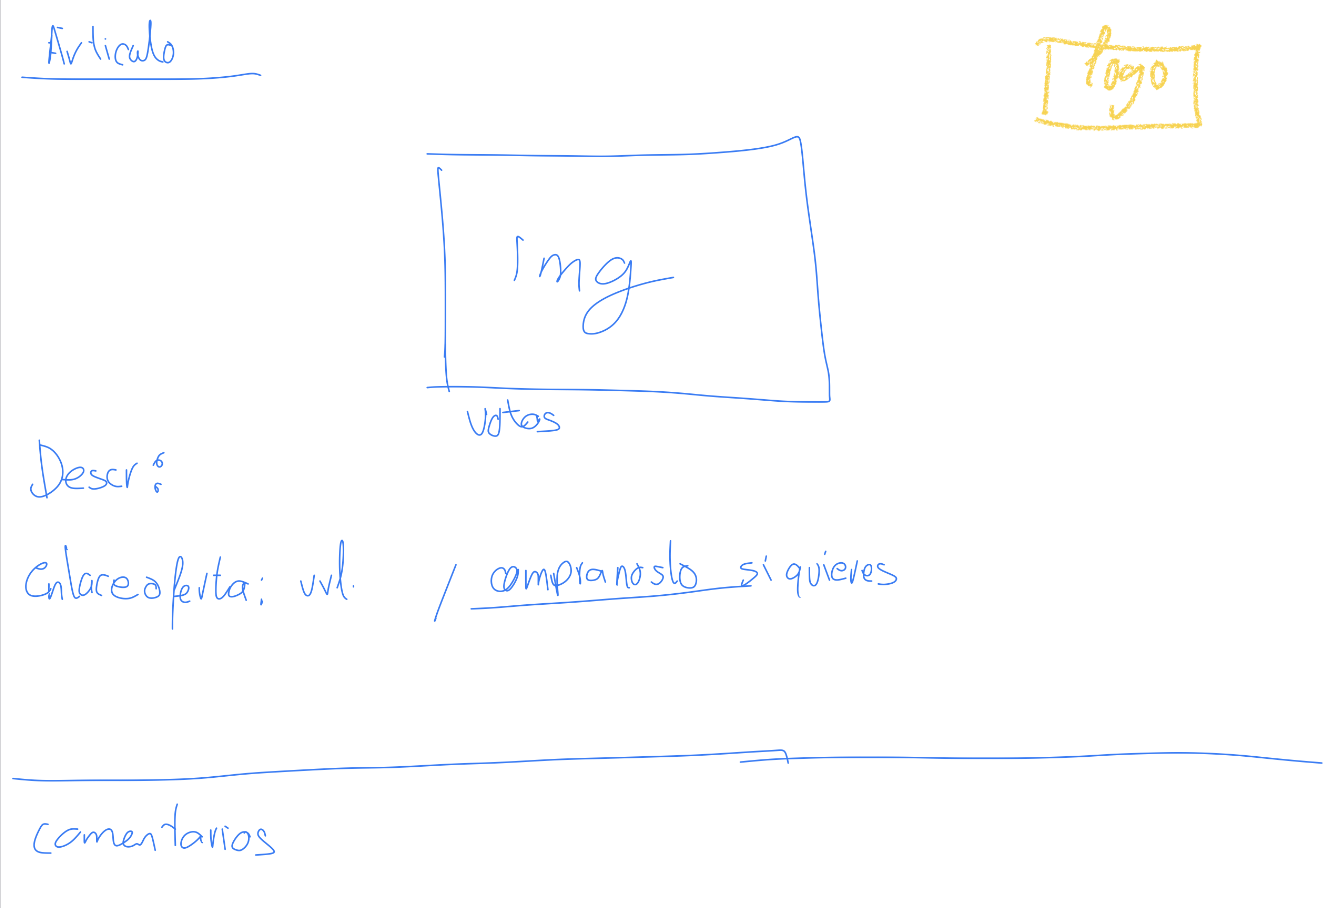 Articulo
logo
img
votos
Descr:
enlaceoferta: url. / compranoslo si quieres
comentarios